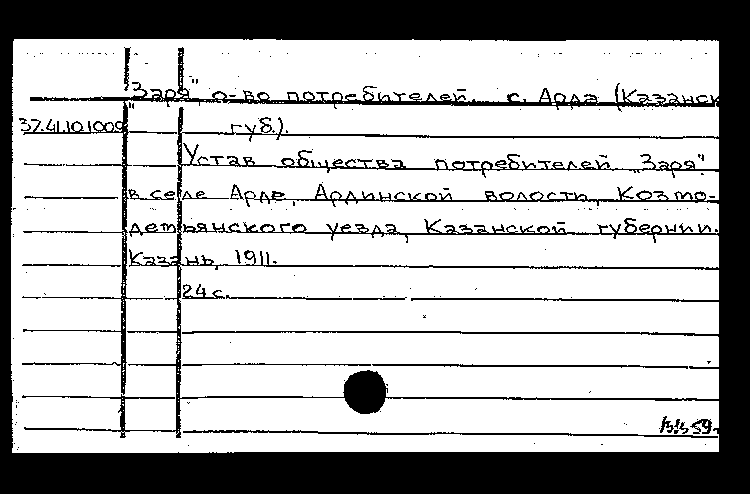 "Заря", о-во потребителей. с. Арда (Казанск
37.41.10.1009 губ.).
Устав общества потребителей "Заря"
в селе Арде, Ардинской волости, Козмо-
демьянского уезда, Казанской губернии.
Казань, 1911.
24 с.